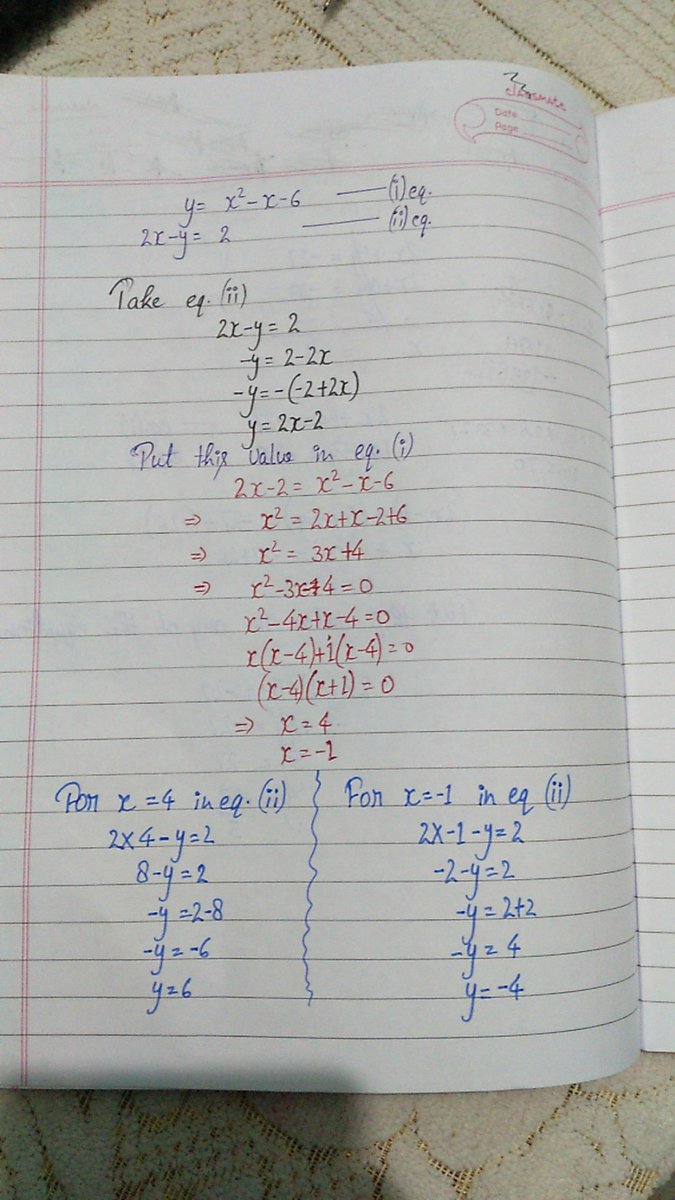 classmate
Date
Page
y= x²-x-6 —— (i) eq.
2x-y= 2 —— (ii) eq.
Take eq. (ii)
2x-y=2
-y= 2-2x
-y=-(-2+2x)
y= 2x-2
Put this value in eq. (i)
2x-2= x²-x-6
⇒ x² = 2x+x-2+6
⇒ x² = 3x+4
⇒ x²-3x-4=0
x²-4x+x-4=0
x(x-4)+1(x-4)=0
(x-4)(x+1)=0
⇒ x=4
x=-1
For x=4 in eq. (ii)
2x4-y=2
8-y=2
-y=2-8
-y=-6
y=6
For x=-1 in eq (ii)
2x-1-y=2
-2-y=2
-y=2+2
-y=4
y=-4